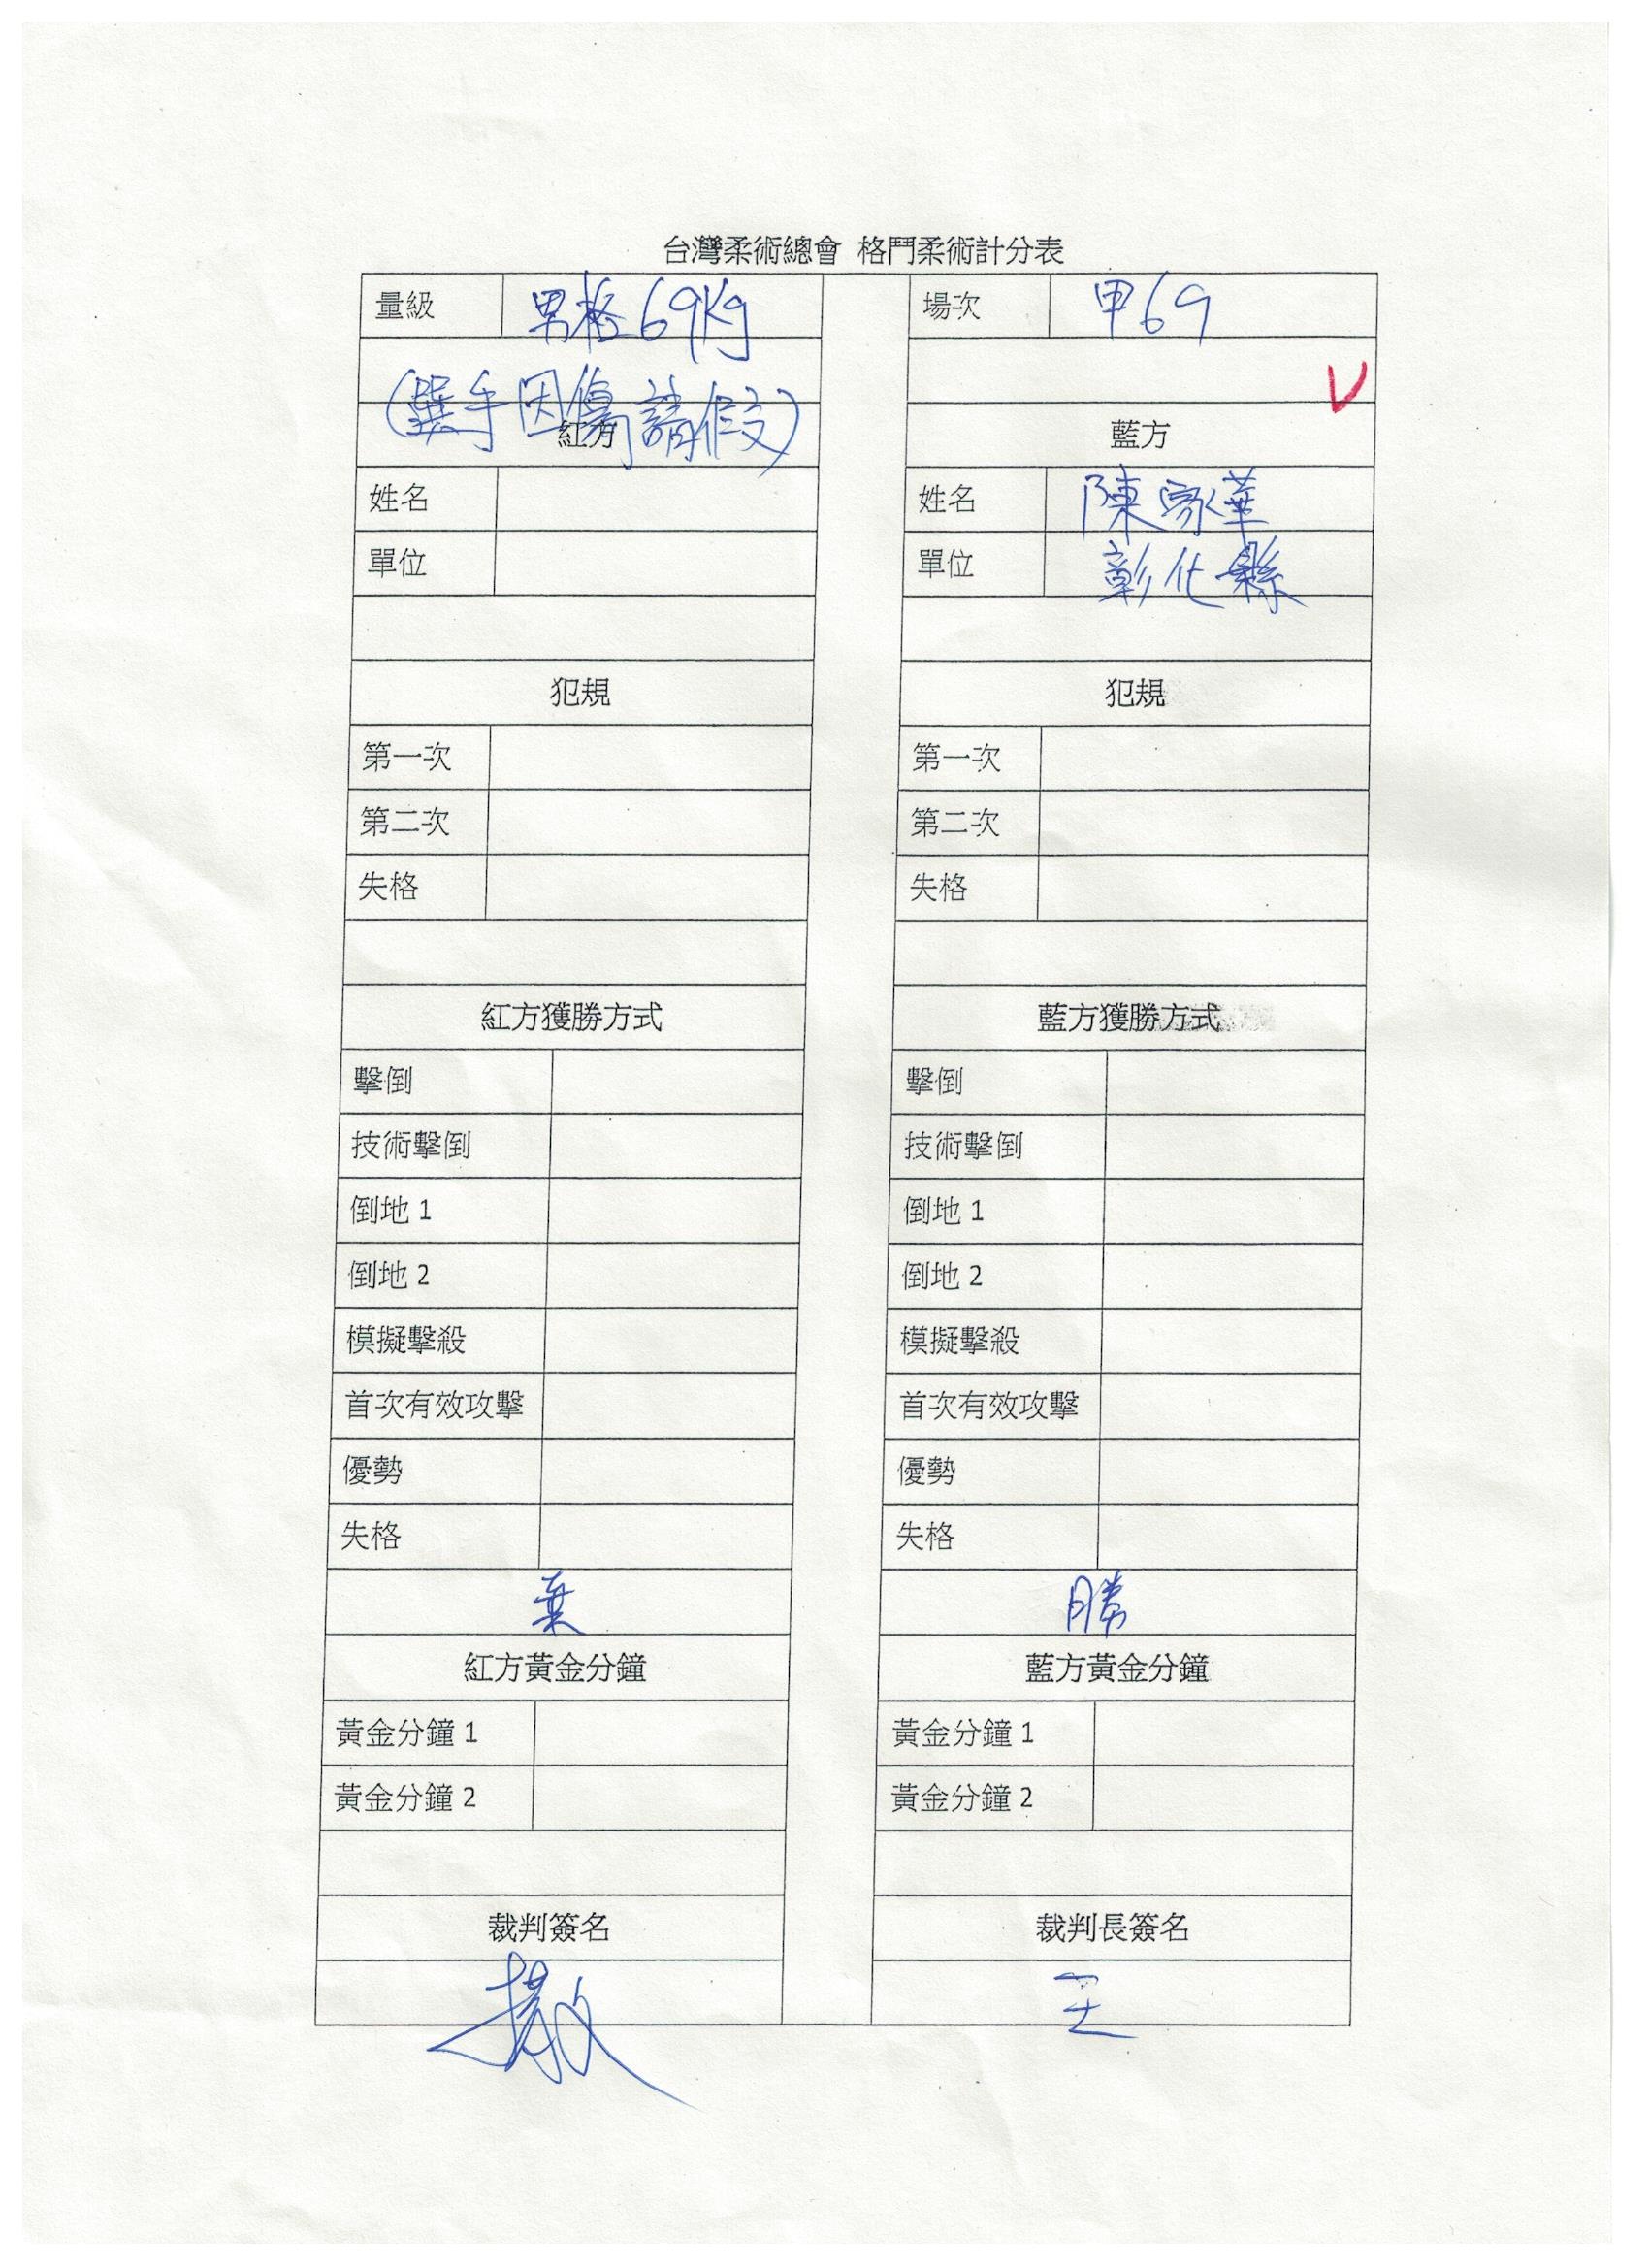 台灣柔術總會 格鬥柔術計分表
量級 男格69Kg 場次 甲69
(選手因傷請假) V
紅方 藍方
姓名 姓名 陳家
單位 單位 彰化縣
犯規 犯規
第一次 第一次
第二次 第二次
失格 失格
紅方獲勝方式 藍方獲勝方式
擊倒 擊倒
技術擊倒 技術擊倒
倒地 1 倒地 1
倒地 2 倒地 2
模擬擊殺 模擬擊殺
首次有效攻擊 首次有效攻擊
優勢 優勢
失格 失格
棄 勝
紅方黃金分鐘 藍方黃金分鐘
黃金分鐘 1 黃金分鐘 1
黃金分鐘 2 黃金分鐘 2
裁判簽名 裁判長簽名
王